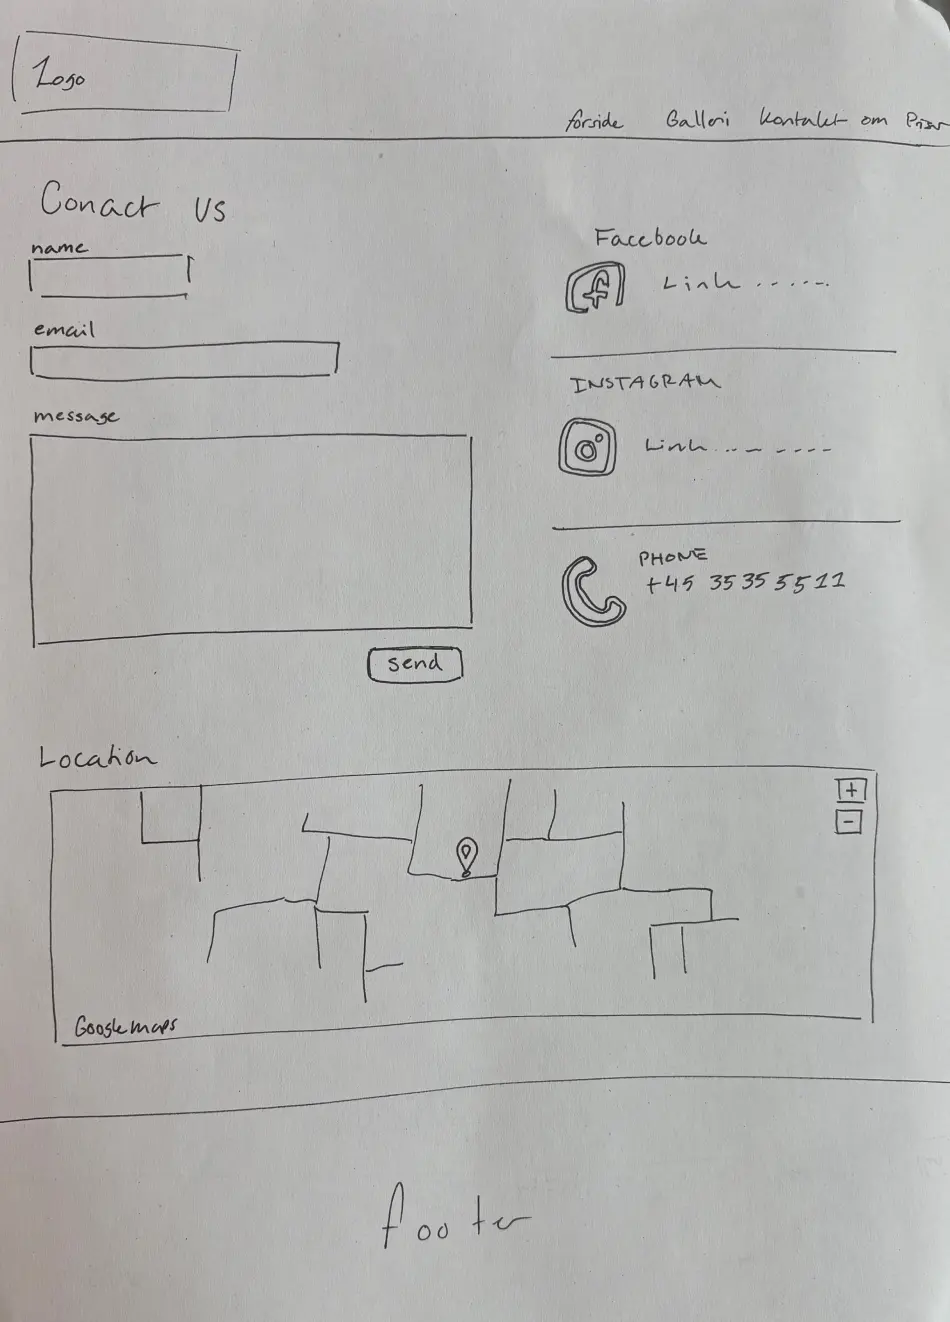 Logo
forside Galleri Kontakt om Priser
Conact us
name
email
message
send
Facebook
Link
INSTAGRAM
Link
PHONE
+45 35 35 55 11
Location
+
-
Google maps
footer